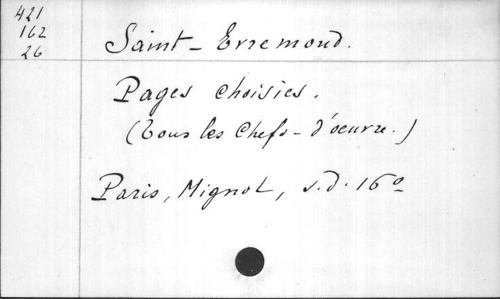 421
162
26
Saint-Evremond.
Pages choisies.
(Tous les Chefs-d'oeuvre.)
Paris, Mignot, s.d. 16º